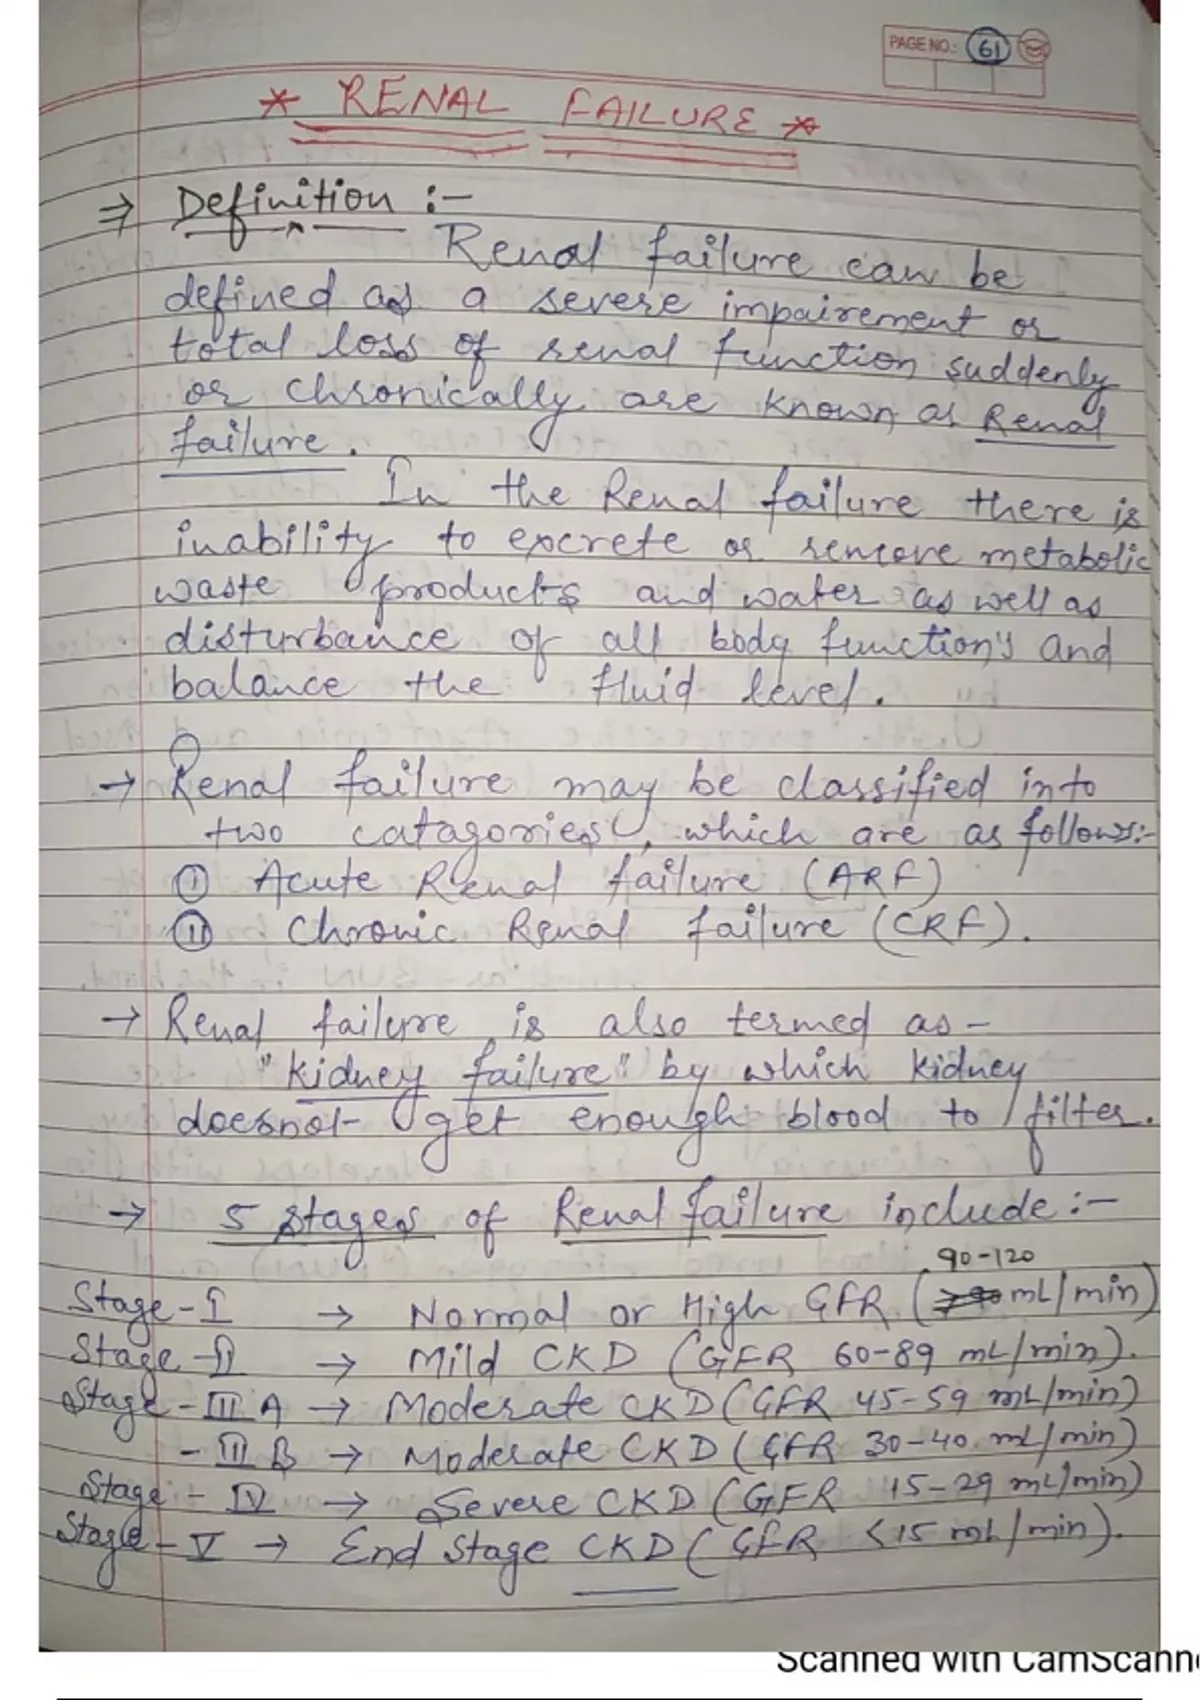 PAGE NO.: 61
* RENAL FAILURE *
⇒ Definition :-
Renal failure can be
defined as a severe impairement or
total loss of renal function suddenly
or chronically are known as Renal
failure.
In the Renal failure there is
inability to excrete or remove metabolic
waste products and water as well as
disturbance of all body function's and
balance the fluid level.
→ Renal failure may be classified into
two catagories, which are as follows:-
(I) Acute Renal failure (ARF)
(II) Chronic Renal failure (CRF).
→ Renal failure is also termed as -
"kidney failure" by which kidney
doesnot get enough blood to filter.
→ 5 stages of Renal failure include :-
90-120
Stage-I → Normal or High GFR (mL/min)
Stage-II → Mild CKD (GFR 60-89 mL/min).
Stage-III A → Moderate CKD (GFR 45-59 mL/min)
-III B → Moderate CKD (GFR 30-40 ml/min)
Stage - IV → Severe CKD (GFR 15-29 mL/min)
Stage-V → End stage CKD (GFR <15 mL/min).
Scanned with CamScann